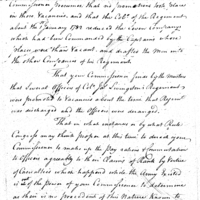 Commissioner Presumes that no promotions took place
in these Vacancies, and that this Colo. of the Regiment
about the January 1782 reduced the Seven Company
which had been Commanded by the Captains whose
place was then Vacant, and drafted the Men into
the other Companies of his Regiment
That your Commissioner finds by the muster
that several Officers of Colo. Jas Livingston Regiment
was promoted to Vacancies about the time that Regmt
was discharged and the Officers was deranged.
That in what instances or by what Rule
Congress may think proper at this time to direct your
Commissioner to make up the Pay rations & Commutation
to Officers agreeably to their Claims of Rank by Virtue
of Casualties which happened while the Army existed
is not in the power of your Commissioner to determine
as there is no precedent of this Nature known to